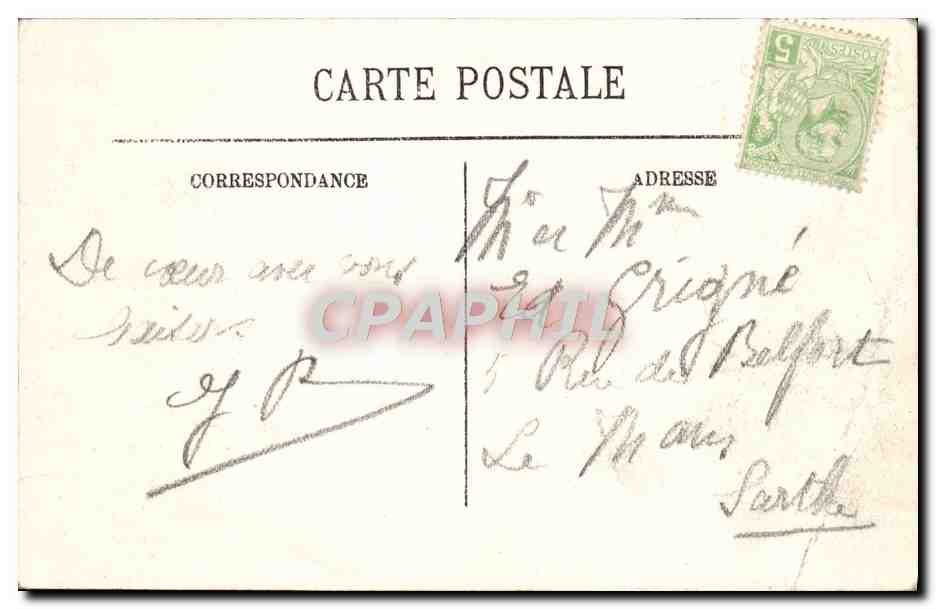 CARTE POSTALE
CORRESPONDANCE
De cœur avec vous
Baisers
ADRESSE
Mr et Mme
Ed Grigné
5 Rue de Belfort
Le Mans
Sarthe
5
POSTES
CPAPHIL